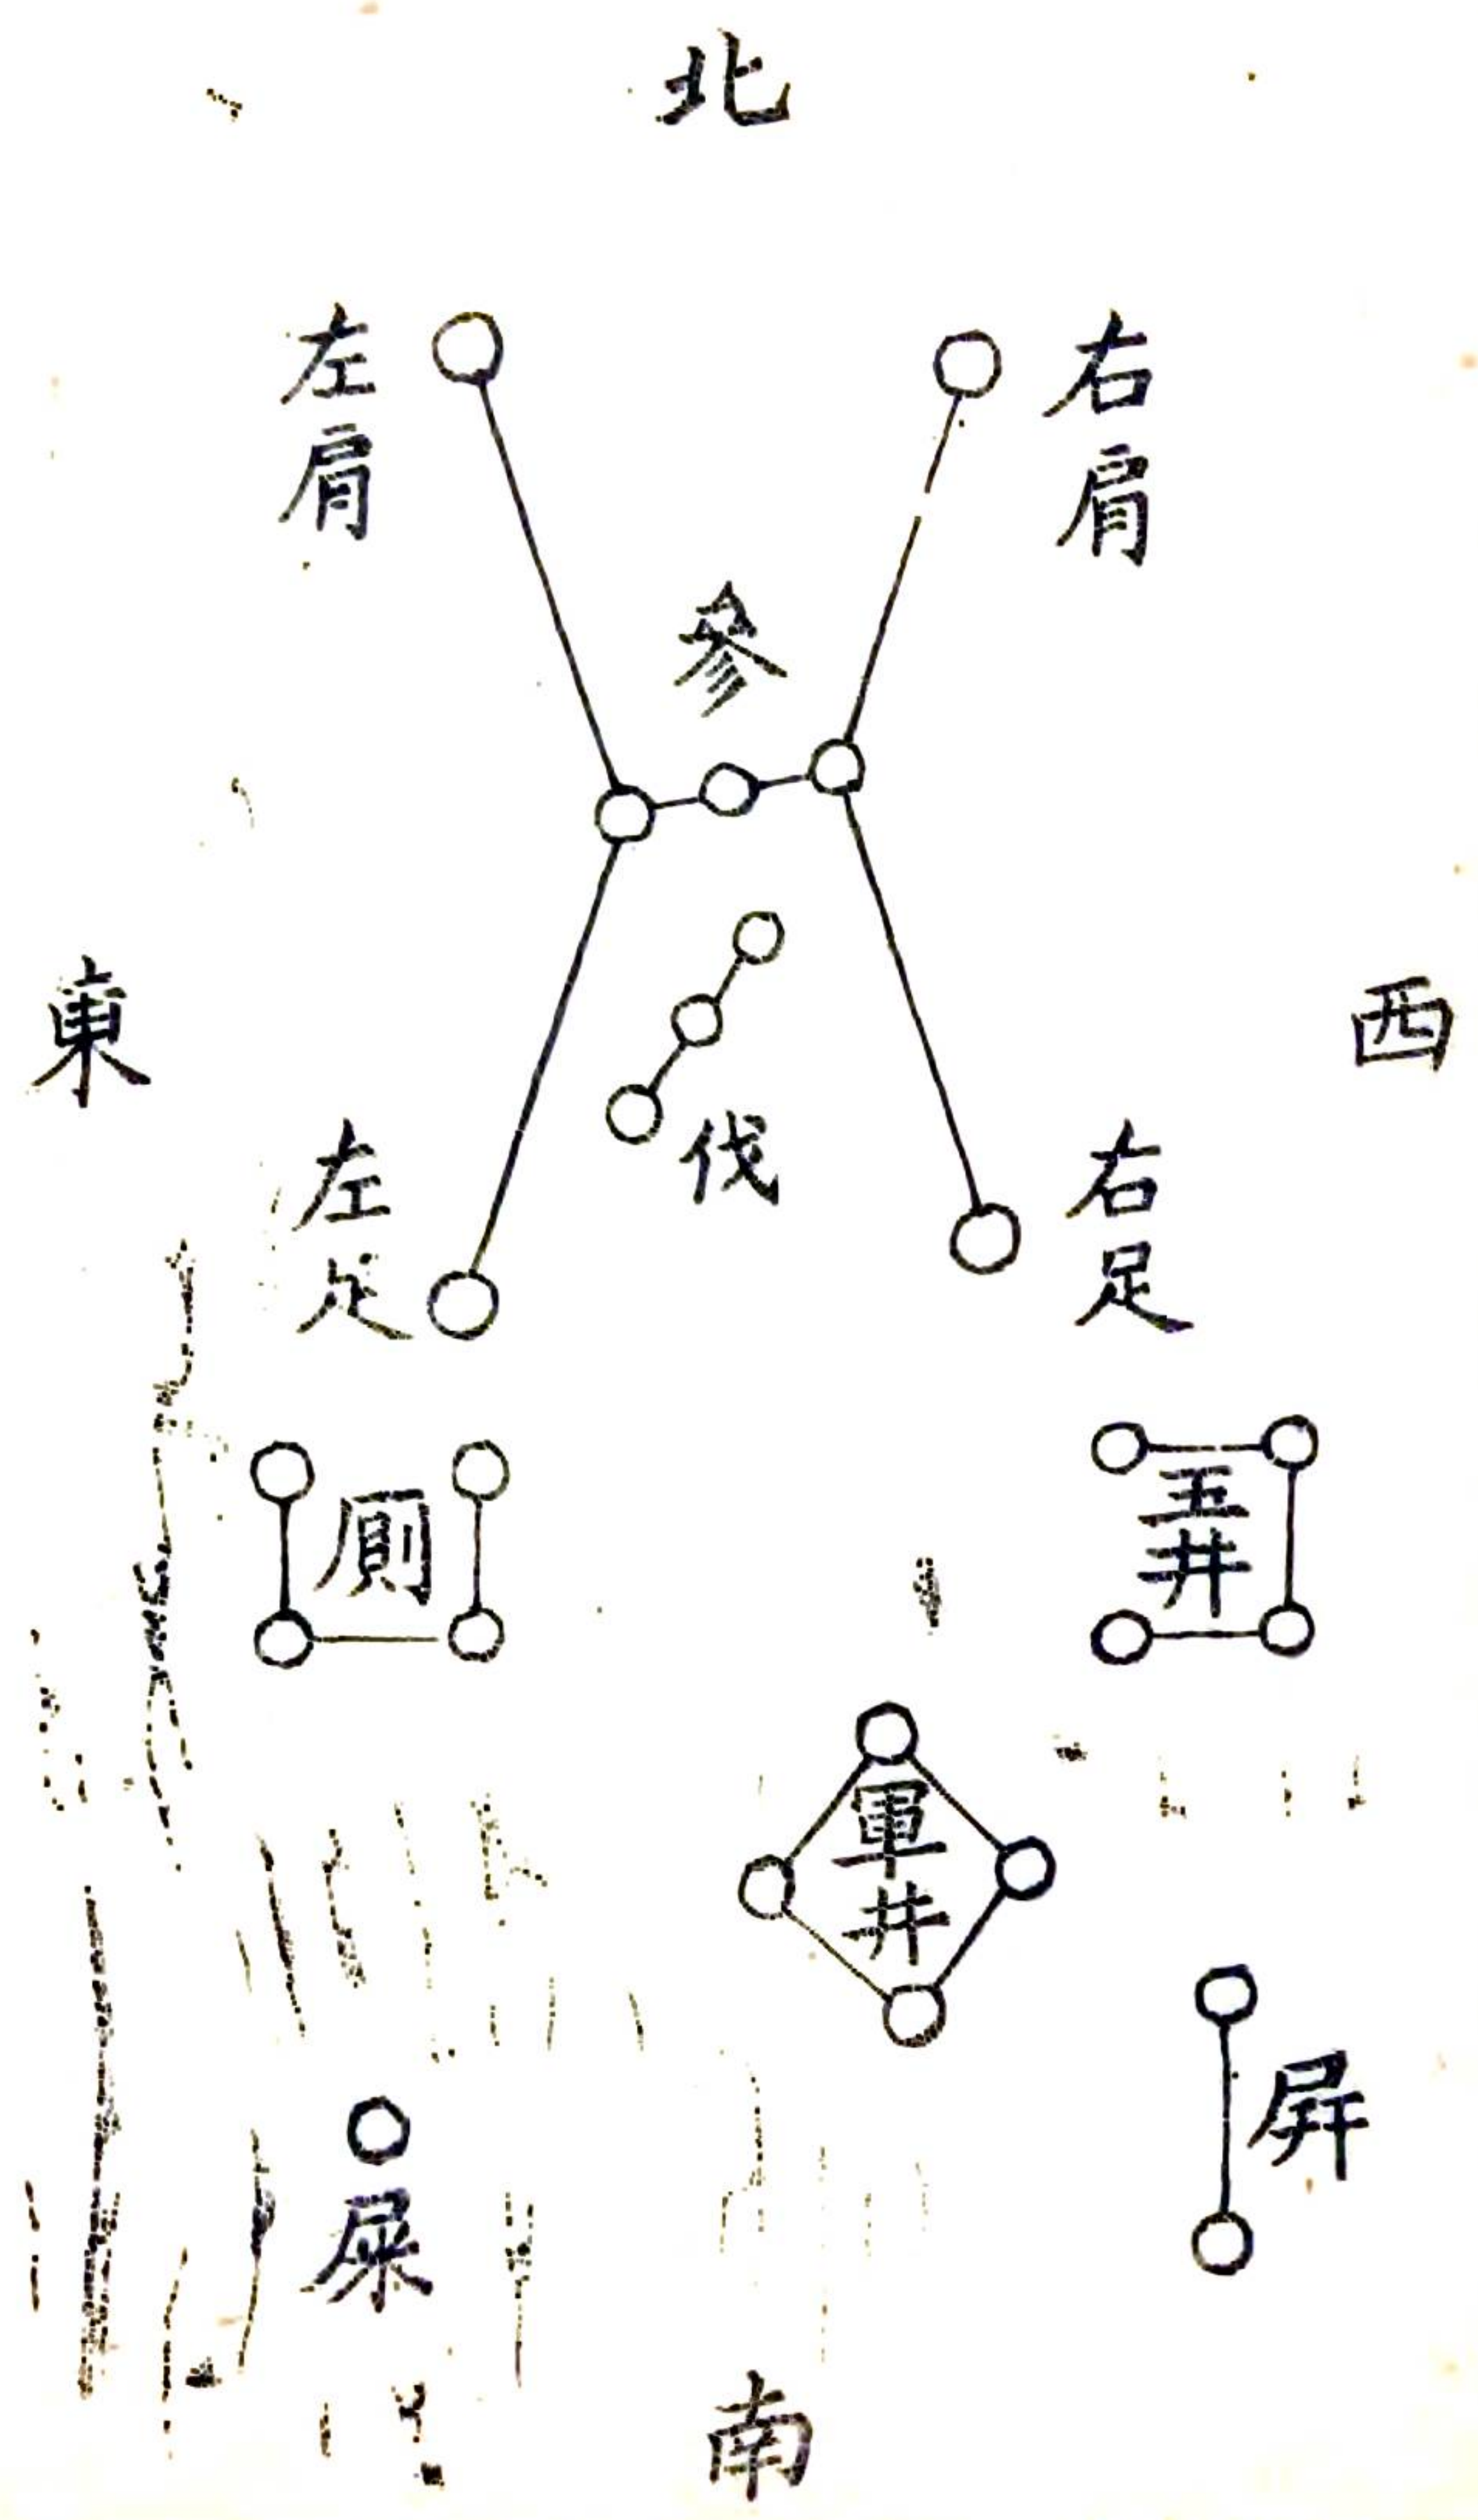 北
左肩
右肩
參
東
西
伐
左足
右足
厠
玉井
軍井
屏
屎
南